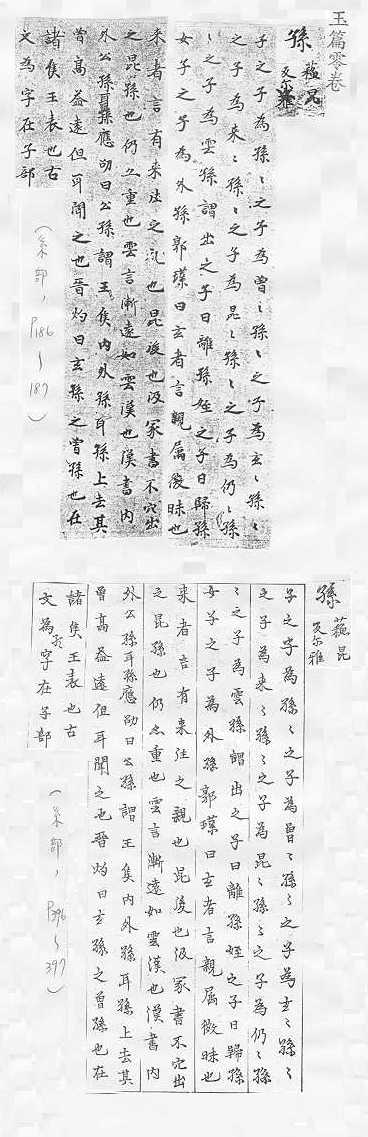 玉篇零卷
孫 蓀昆反尔雅
子之子為孫〻之子為曾〻孫〻之子為玄〻孫〻
之子為来〻孫〻之子為昆〻孫〻之子為仍〻孫
〻之子為雲孫謂出之子曰離孫姪之子曰歸孫
女子之子為外孫郭璞曰玄者言親属後昧也
来者言有来往之 也昆後也汲冢書不穴出
之昆孫也仍亦重也雲言漸遠如雲漢也漢書内
外公孫耳孫應劭曰公孫謂王侯内外孫耳孫上去其
曾高益遠但耳聞之也晉灼曰玄孫之曾孫也在
諸侯王表也古
文為字在子部
(糸部，P186~187)
孫 蓀昆反尔雅
子之字為孫〻之子為曾〻孫〻之子為玄〻孫〻
之子為来〻孫〻之子為昆〻孫〻之子為仍〻孫
〻之子為雲孫謂出之子曰離孫姪之子曰歸孫
女子之子為外孫郭璞曰玄者言親属微昧也
来者言有来往之親也昆後也汲冢書不穴出
之昆孫也仍亦重也雲言漸遠如雲漢也漢書内
外公孫耳孫應劭曰公孫謂王侯内外孫耳孫上去其
曾高益遠但耳聞之也晉灼曰玄孫之曾孫也在
諸侯王表也古
文為字在子部
(糸部，P396~397)